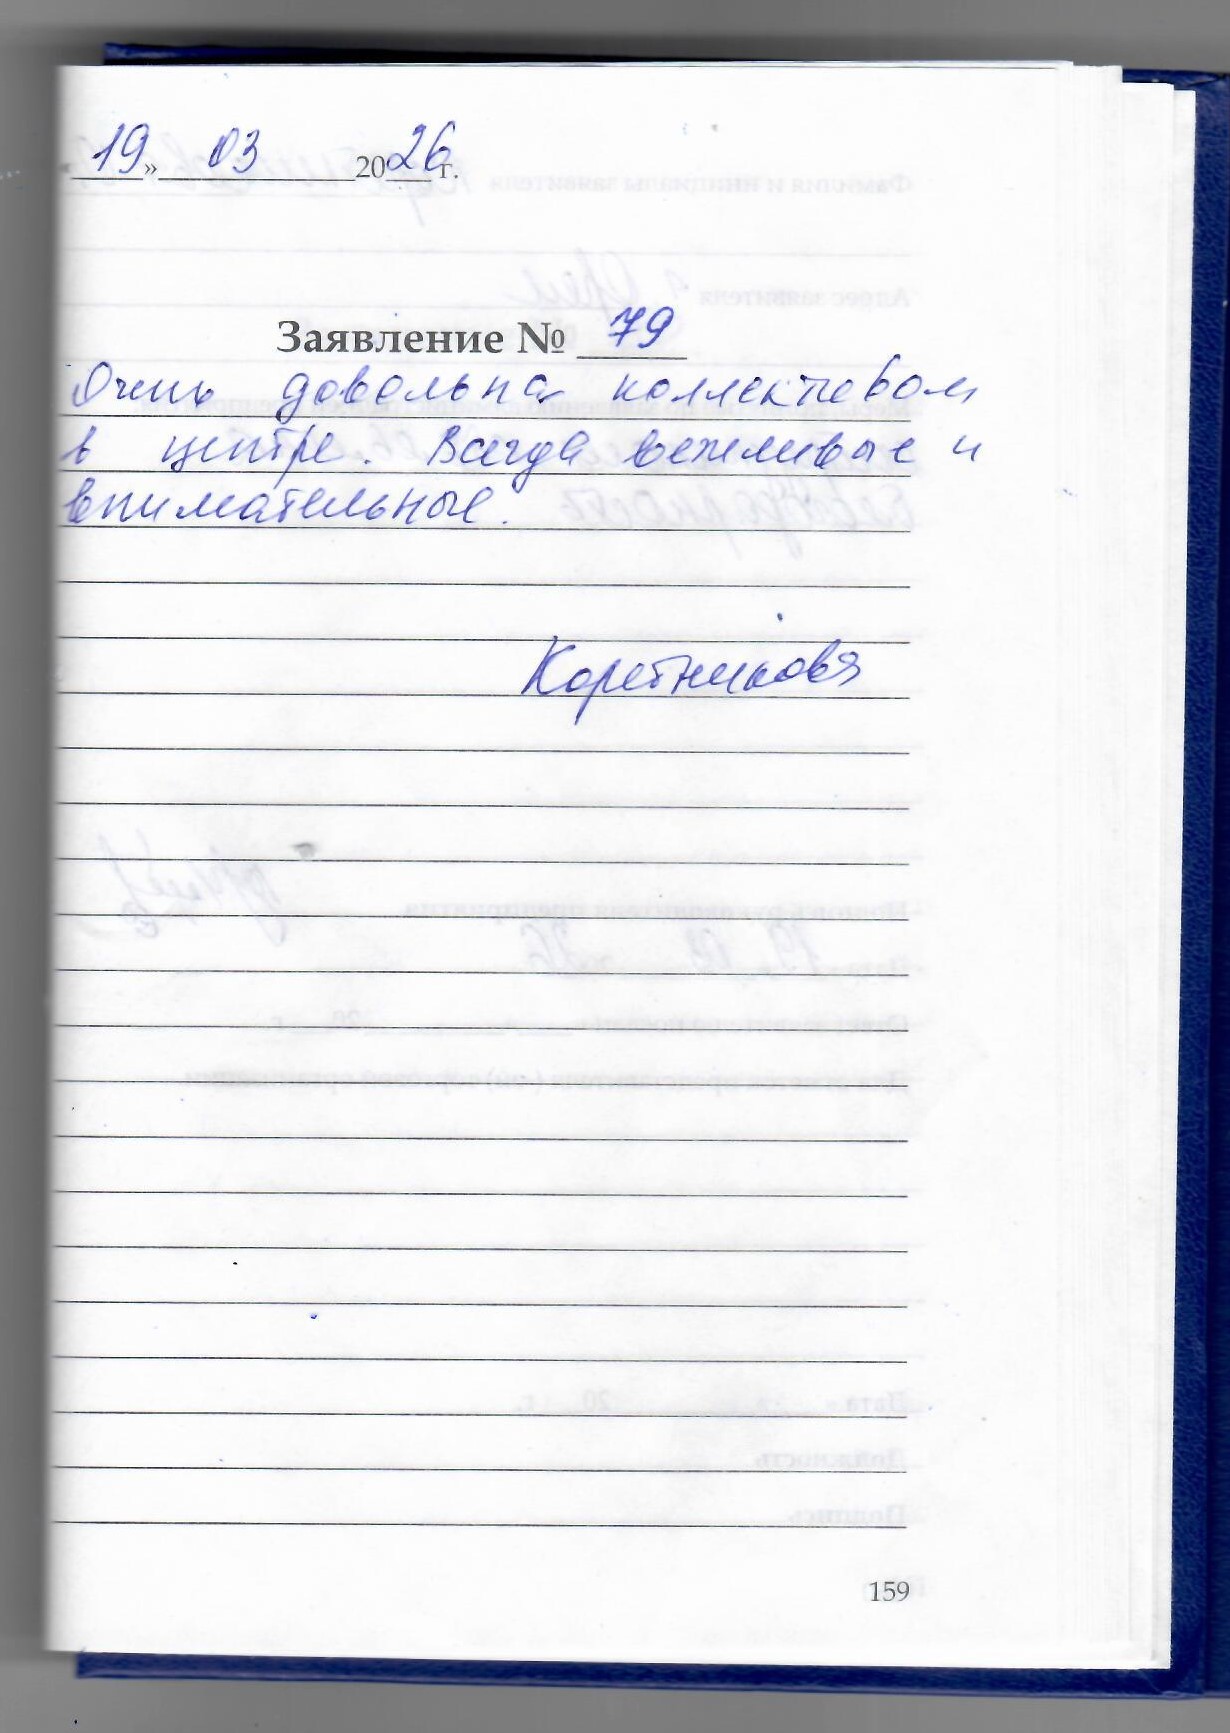 19» 03 2026 г.
Заявление № 79
Очень довольна коллективом
в центре. Всегда вежливые и
внимательные.
Коретникова
159